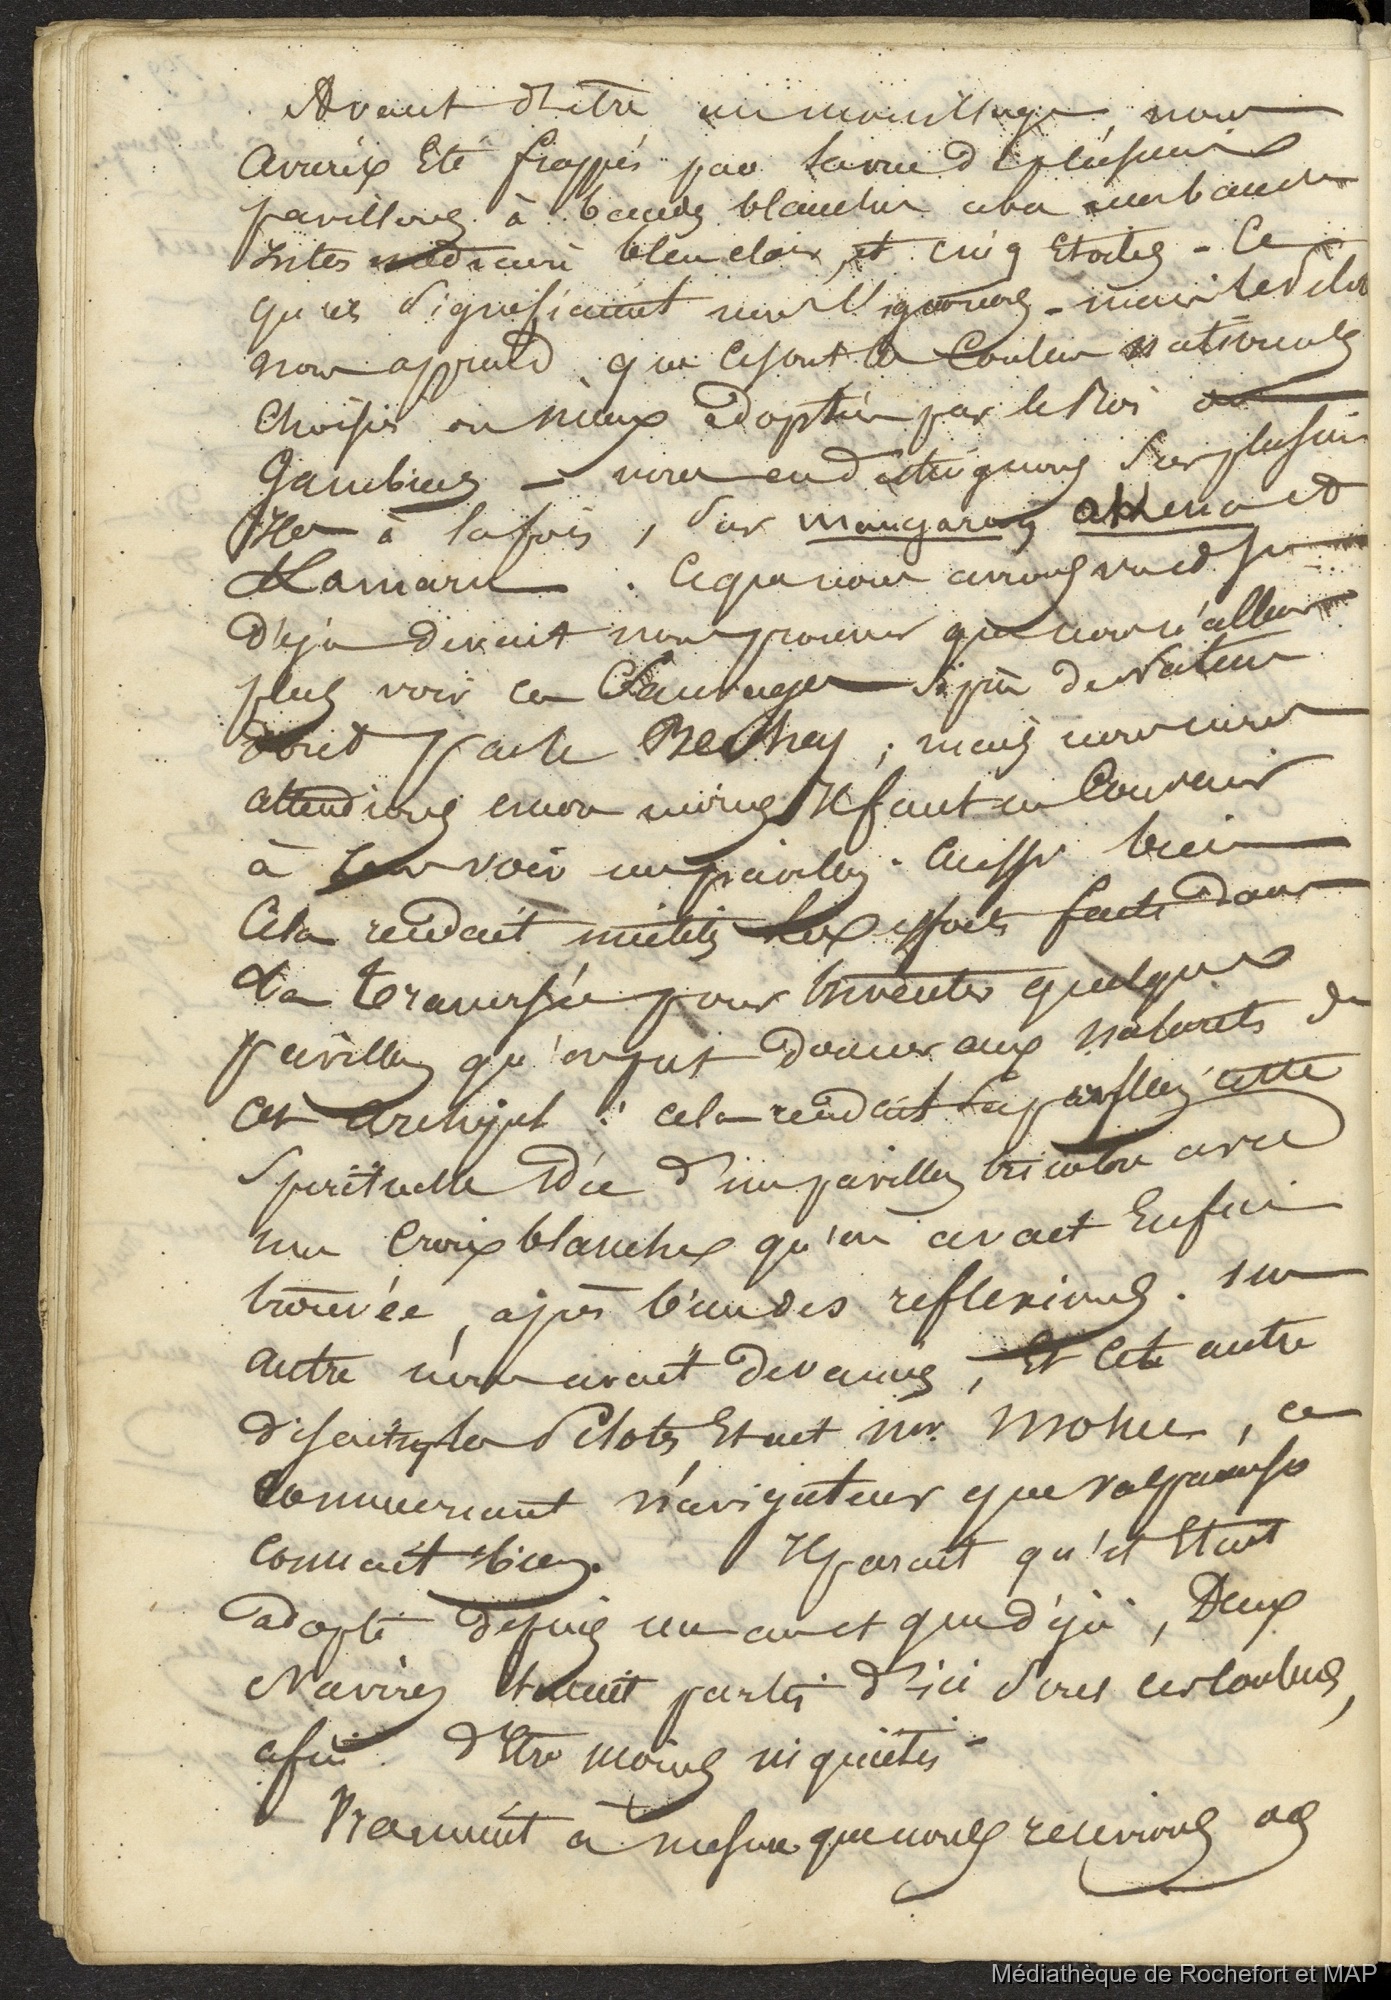 Avant d'être au mouillage, nous
avions été frappés par la vue de plusieurs
pavillons à bandes blanches
bleu clair, et cinq Etoiles - Ce
qu'ils signifiaient nous l'ignorions -
nous apprend que ce sont les Couleurs nationales
Choisies ou mieux adoptées par le Roi
Gambiens - nous en distinguons Sur plusieurs
Iles à la fois, Sur mangareva akena et
Kamaru. Ce que nous avons vu et su
Déja devait nous prouver que nous n'allions
plus voir ces Sauvages
dont parle Beechey ; mais nous nous
attendions encore moins Il faut en Convenir
à leur voir un pavillon. Aussi bien
Cela rendait inutiles les efforts faits dans
La traversée pour Inventer quelque
pavillon qu'on put donner aux naturels de
cet archipel : cela rendait superflue cette
Spirituelle Idée d'un pavillon tricolore avec
une Croix blanche qu'on avait Enfin
trouvée, après bien des reflexions. un
autre nous avait devancés, Et Cet autre
disait le Pilote, Etait Mr.
commercant navigateur que valparaiso
connait bien. Il parait qu'il Etait
adopté depuis un an et que déjà, Deux
Navires Etaient partis d'ici Sous ces couleurs,
afin d'Etre moins inquiétés -
Vraiment à mesure que nous recevions des
Médiathèque de Rochefort et MAP